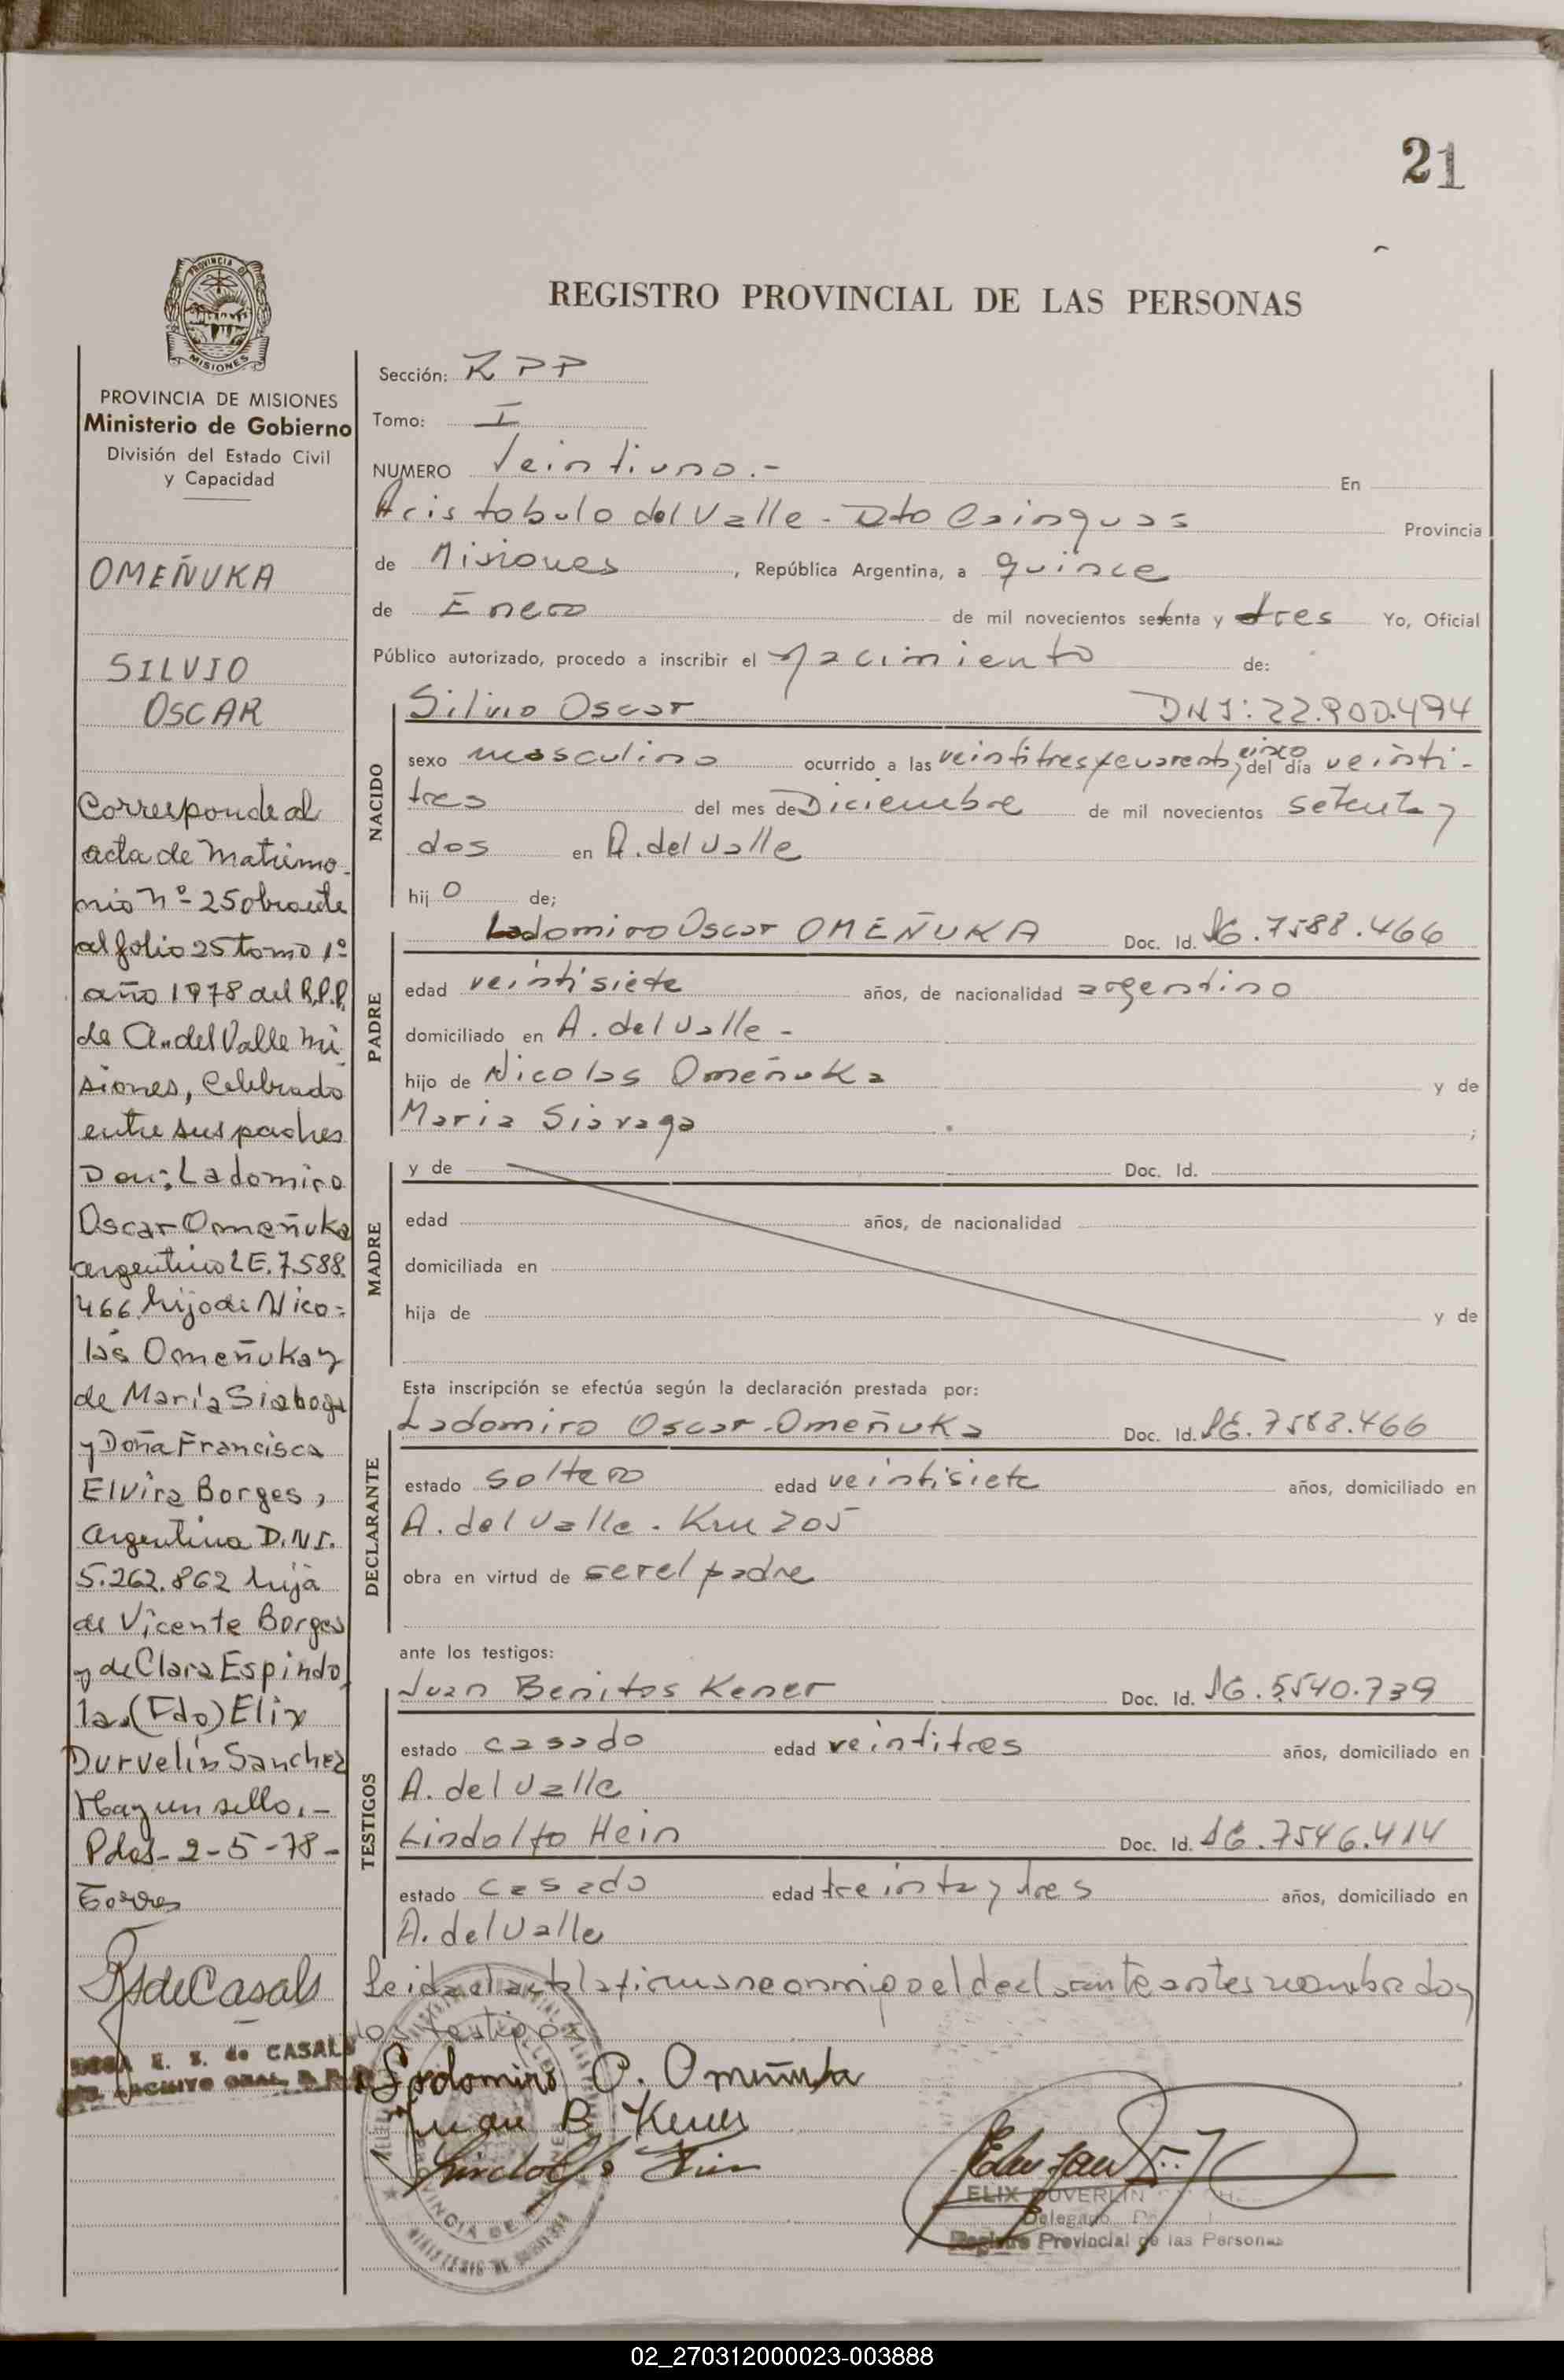 21
REGISTRO PROVINCIAL DE LAS PERSONAS
PROVINCIA DE MISIONES
Ministerio de Gobierno
División del Estado Civil
y Capacidad
OMEÑUKA
SILVIO
OSCAR
Corresponde al
acta de Matrimo-
nio Nº 25 obrante
al folio 25 tomo 1º
año 1978 del R.P.P.
de A. del Valle Mi
siones, Celebrado
entre sus padres
Don; Ladomiro
Oscar Omeñuka
argentino L E. 7.588.
466 hijo de Nico-
lás Omeñuka y
de María Siaboga
y Doña Francisca
Elvira Borges,
argentina D.N.I.
5.262.862 hija
de Vicente Borges
y de Clara Espindo
la. (Fdo) Elix
Durvelin Sanchez
Hay un sello.-
Pdas- 2-5-78-
Torres
de Casals
E. S. de CASALS
ARCHIVO GRAL.
Sección: RPP
Tomo: I
NUMERO Veintiuno.- En
Aristobulo del Valle - Dto Cainguas Provincia
de Misiones, República Argentina, a quince
de Enero de mil novecientos setenta y tres Yo, Oficial
Público autorizado, procedo a inscribir el Nacimiento de:
Silvio Oscar DNI: 22.900.494
NACIDO
sexo masculino ocurrido a las veintitres y cuarenta y cinco del día veinti-
tres del mes de Diciembre de mil novecientos setenta y
dos en A. del Valle
hijo de;
PADRE
Ladomiro Oscar OMEÑUKA Doc. Id. LE. 7588.466
edad veintisiete años, de nacionalidad argentino
domiciliado en A. del Valle -
hijo de Nicolas Omeñuka y de
Maria Siavaga ;
MADRE
y de Doc. Id.
edad años, de nacionalidad
domiciliada en
hija de y de
Esta inscripción se efectúa según la declaración prestada por:
DECLARANTE
Ladomiro Oscar Omeñuka Doc. Id. LE. 7588.466
estado soltero edad veintisiete años, domiciliado en
A. del Valle - Km 205
obra en virtud de ser el padre
ante los testigos:
TESTIGOS
Juan Benitos Kener Doc. Id. LE. 5540.739
estado casado edad veintitres años, domiciliado en
A. del Valle
Lindolfo Hein Doc. Id. LE. 7546.414
estado casado edad treinta y tres años, domiciliado en
A. del Valle
Leida el acta la firman conmigo el declarante antes nombrado y
los testigos
Ladomiro O. Omeñuka
Juan B Kener
Lindolfo Hein
ELIX DUVERLIN
Delegado
Registro Provincial de las Personas
02_270312000023-003888